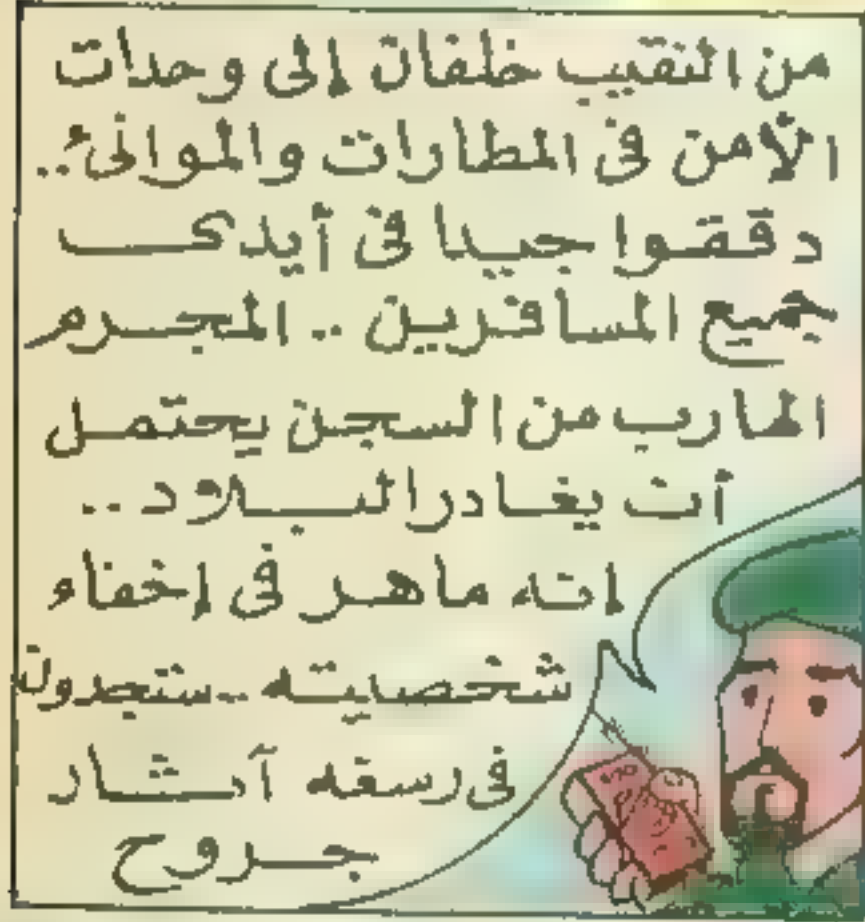 من النقيب خلفان إلى وحدات
الأمن فى المطارات والموانىء..
دققوا جيدا فى أيدى
جميع المسافرين .. المجرم
الهارب من السجن يحتمل
أن يغادر البلاد ..
إنه ماهر فى إخفاء
شخصايته .. ستجدون
فى رسغه آثار
جروح